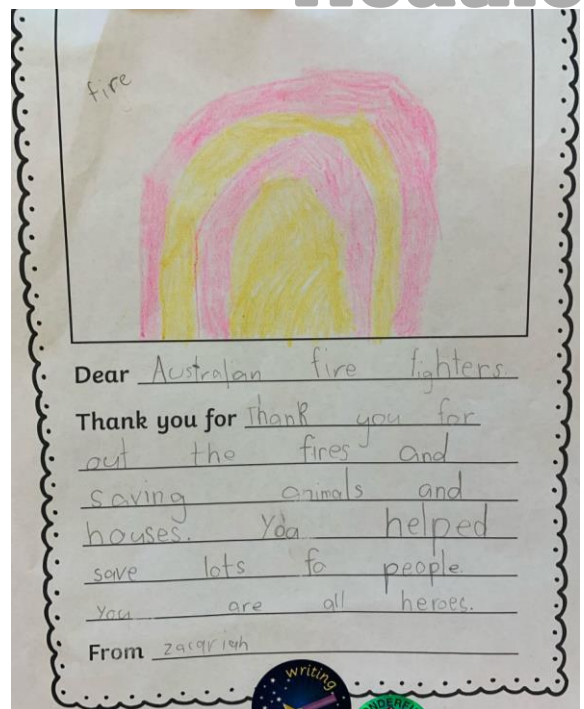 fire
Dear Australan fire fighters.
Thank you for Thank you for
out the fires and
saving animals and
houses. You helped
save lots fo people.
You are all heroes.
From zacariah
writing